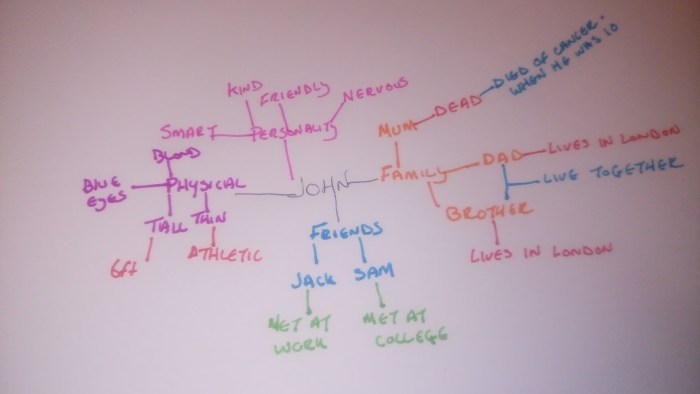 KIND
FRIENDLY
NERVOUS
SMART
PERSONALITY
DIED OF CANCER.
WHEN HE WAS 10
DEAD
MUM
BLOND
BLUE
EYES
PHYSICAL
TALL
THIN
6ft
ATHLETIC
JOHN
FAMILY
DAD
LIVES IN LONDON
LIVE TOGETHER
BROTHER
LIVES IN LONDON
FRIENDS
JACK
SAM
MET AT
WORK
MET AT
COLLEGE